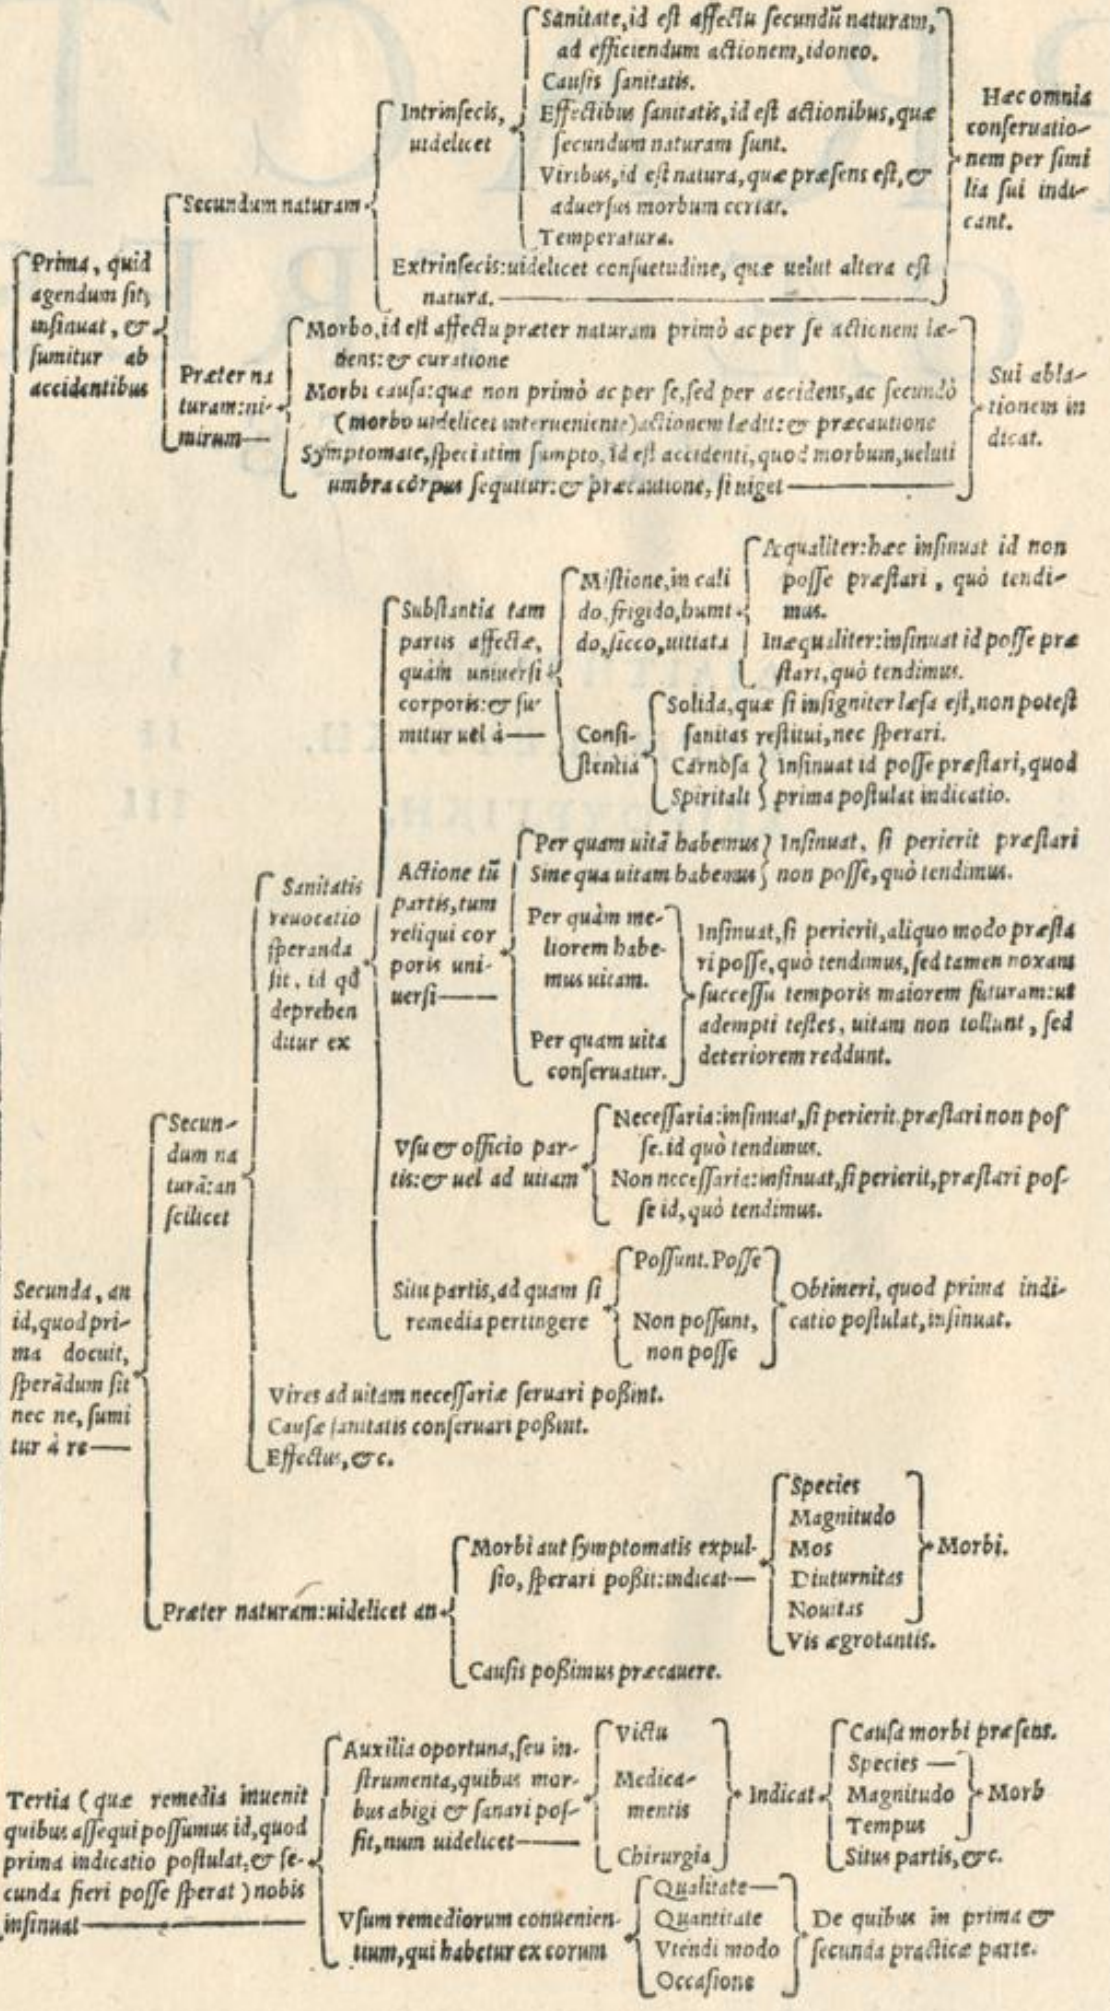 Prima, quid
agendum sit,
insinuat, &
sumitur ab
accidentibus
Secundum naturam
Intrinsecis,
uidelicet
Sanitate, id est affectu secundũ naturam,
ad efficiendum actionem, idoneo.
Causis sanitatis.
Effectibus sanitatis, id est actionibus, quæ
secundum naturam sunt.
Viribus, id est natura, quæ præsens est, &
aduersus morbum certat.
Temperatura.
Extrinsecis: uidelicet consuetudine, quæ uelut altera est
natura.
Hæc omnia
conseruatio-
nem per simi
lia sui indi-
cant.
Præter na
turam: ni-
mirum
Morbo, id est affectu præter naturam primò ac per se actionem læ-
dens: & curatione
Morbi causa: quæ non primò ac per se, sed per accidens, ac secundò
(morbo uidelicet interueniente) actionem lædit: & præcautione
Symptomate, speciatim sumpto, id est accidenti, quod morbum, ueluti
umbra còrpus sequitur: & præcautione, si uiget
Sui abla-
tionem in
dicat.
Secunda, an
id, quod pri-
ma docuit,
sperãdum sit
nec ne, sumi
tur à re
Secun-
dum na
turã: an
scilicet
Sanitatis
reuocatio
speranda
sit, id qđ
deprehen
ditur ex
Substantia tam
partis affectæ,
quàm uniuersi
corporis: & su-
mitur uel à
Mistione, in cali
do, frigido, humi
do, sicco, uitiata
Æqualiter: hæc insinuat id non
posse præstari, quò tendi-
mus.
Inæqualiter: insinuat id posse præ
stari, quò tendimus.
Consi-
stentia
Solida, quæ si insigniter læsa est, non potest
sanitas restitui, nec sperari.
Carnosa
Spiritali
Insinuat id posse præstari, quod
prima postulat indicatio.
Actione tũ
partis, tum
reliqui cor
poris uni-
uersi
Per quam uitã habemus
Sine qua uitam habemus
Insinuat, si perierit præstari
non posse, quò tendimus.
Per quàm me-
liorem habe-
mus uitam.
Per quam uita
conseruatur.
Insinuat, si perierit, aliquo modo præsta
ri posse, quò tendimus, sed tamen noxam
successu temporis maiorem futuram: ut
adempti testes, uitam non tollunt, sed
deteriorem reddunt.
Vsu & officio par-
tis: & uel ad uitam
Necessaria: insinuat, si perierit, præstari non pos
se, id quò tendimus.
Non necessaria: insinuat, si perierit, præstari pos-
se id, quò tendimus.
Situ partis, ad quam si
remedia pertingere
Possunt. Posse
Non possunt,
non posse
Obtineri, quod prima indi-
catio postulat, insinuat.
Vires ad uitam necessariæ seruari poßint.
Causæ sanitatis conseruari poßint.
Effectus, &c.
Præter naturam: uidelicet an
Morbi aut symptomatis expul-
sio, sperari poßit: indicat
Species
Magnitudo
Mos
Diuturnitas
Nouitas
Morbi.
Vis ægrotantis.
Causis poßimus præcauere.
Tertia (quæ remedia inuenit
quibus assequi possumus id, quod
prima indicatio postulat, & se-
cunda fieri posse sperat) nobis
insinuat
Auxilia oportuna, seu in-
strumenta, quibus mor-
bus abigi & sanari pos-
sit, num uidelicet
Victu
Medica-
mentis
Chirurgia
Indicat
Causa morbi præsens.
Species
Magnitudo
Tempus
Morb
Situs partis, &c.
Vsum remediorum conuenien-
tium, qui habetur ex eorum
Qualitate
Quantitate
Vtendi modo
Occasione
De quibus in prima &
secunda practicæ parte.